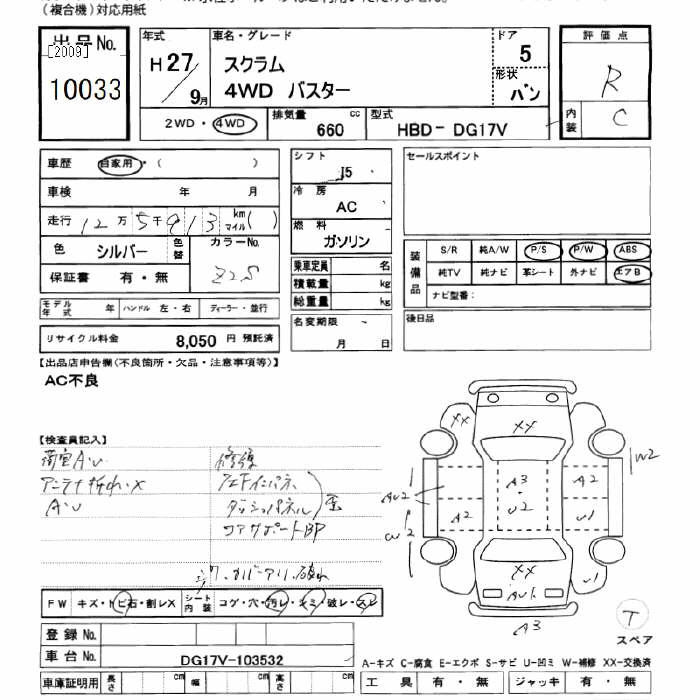 (複合機)対応用紙
出品No.
[2009]
10033
年式
H27/9月
車名・グレード
スクラム
4WD バスター
ドア
5
形状
バン
評価点
R
内装
C
2WD・4WD
排気量
660 cc
型式
HBD-DG17V
車歴 自家用・( )
車検 年 月
走行 12万5千913 km マイル( )
色 シルバー 色替
カラーNo.
Z2S
保証書 有・無
モデル年式 年 ハンドル 左・右 ディーラー・並行
リサイクル料金 8,050 円 預託済
シフト
I5
冷房
AC
燃料
ガソリン
乗車定員 名
積載量 kg
総重量 kg
名変期限
月 日
セールスポイント
装備品
S/R 純A/W P/S P/W ABS
純TV 純ナビ 革シート 外ナビ エアB
ナビ型番:
後日品
【出品店申告欄(不良箇所・欠品・注意事項等)】
AC不良
【検査員記入】
荷室AU
アンテナ折れX
AU
修復
フェFインパネ
ダッシュパネル
コアサポートBP
破れ
FW キズ・トビ石・割レX
シート内装 コゲ・穴・汚レ・キミ・破レ・スレ
登録No.
車台No. DG17V-103532
車庫証明用 長さ cm 幅 cm 高さ cm
XX
XX
A3
W2
A2
AU2
A2
W2
U1
W2
XX
AU1
U1
A3
T
スペア
A-キズ C-腐食 E-エクボ S-サビ U-凹ミ W-補修 XX-交換済
工具 有・無 ジャッキ 有・無